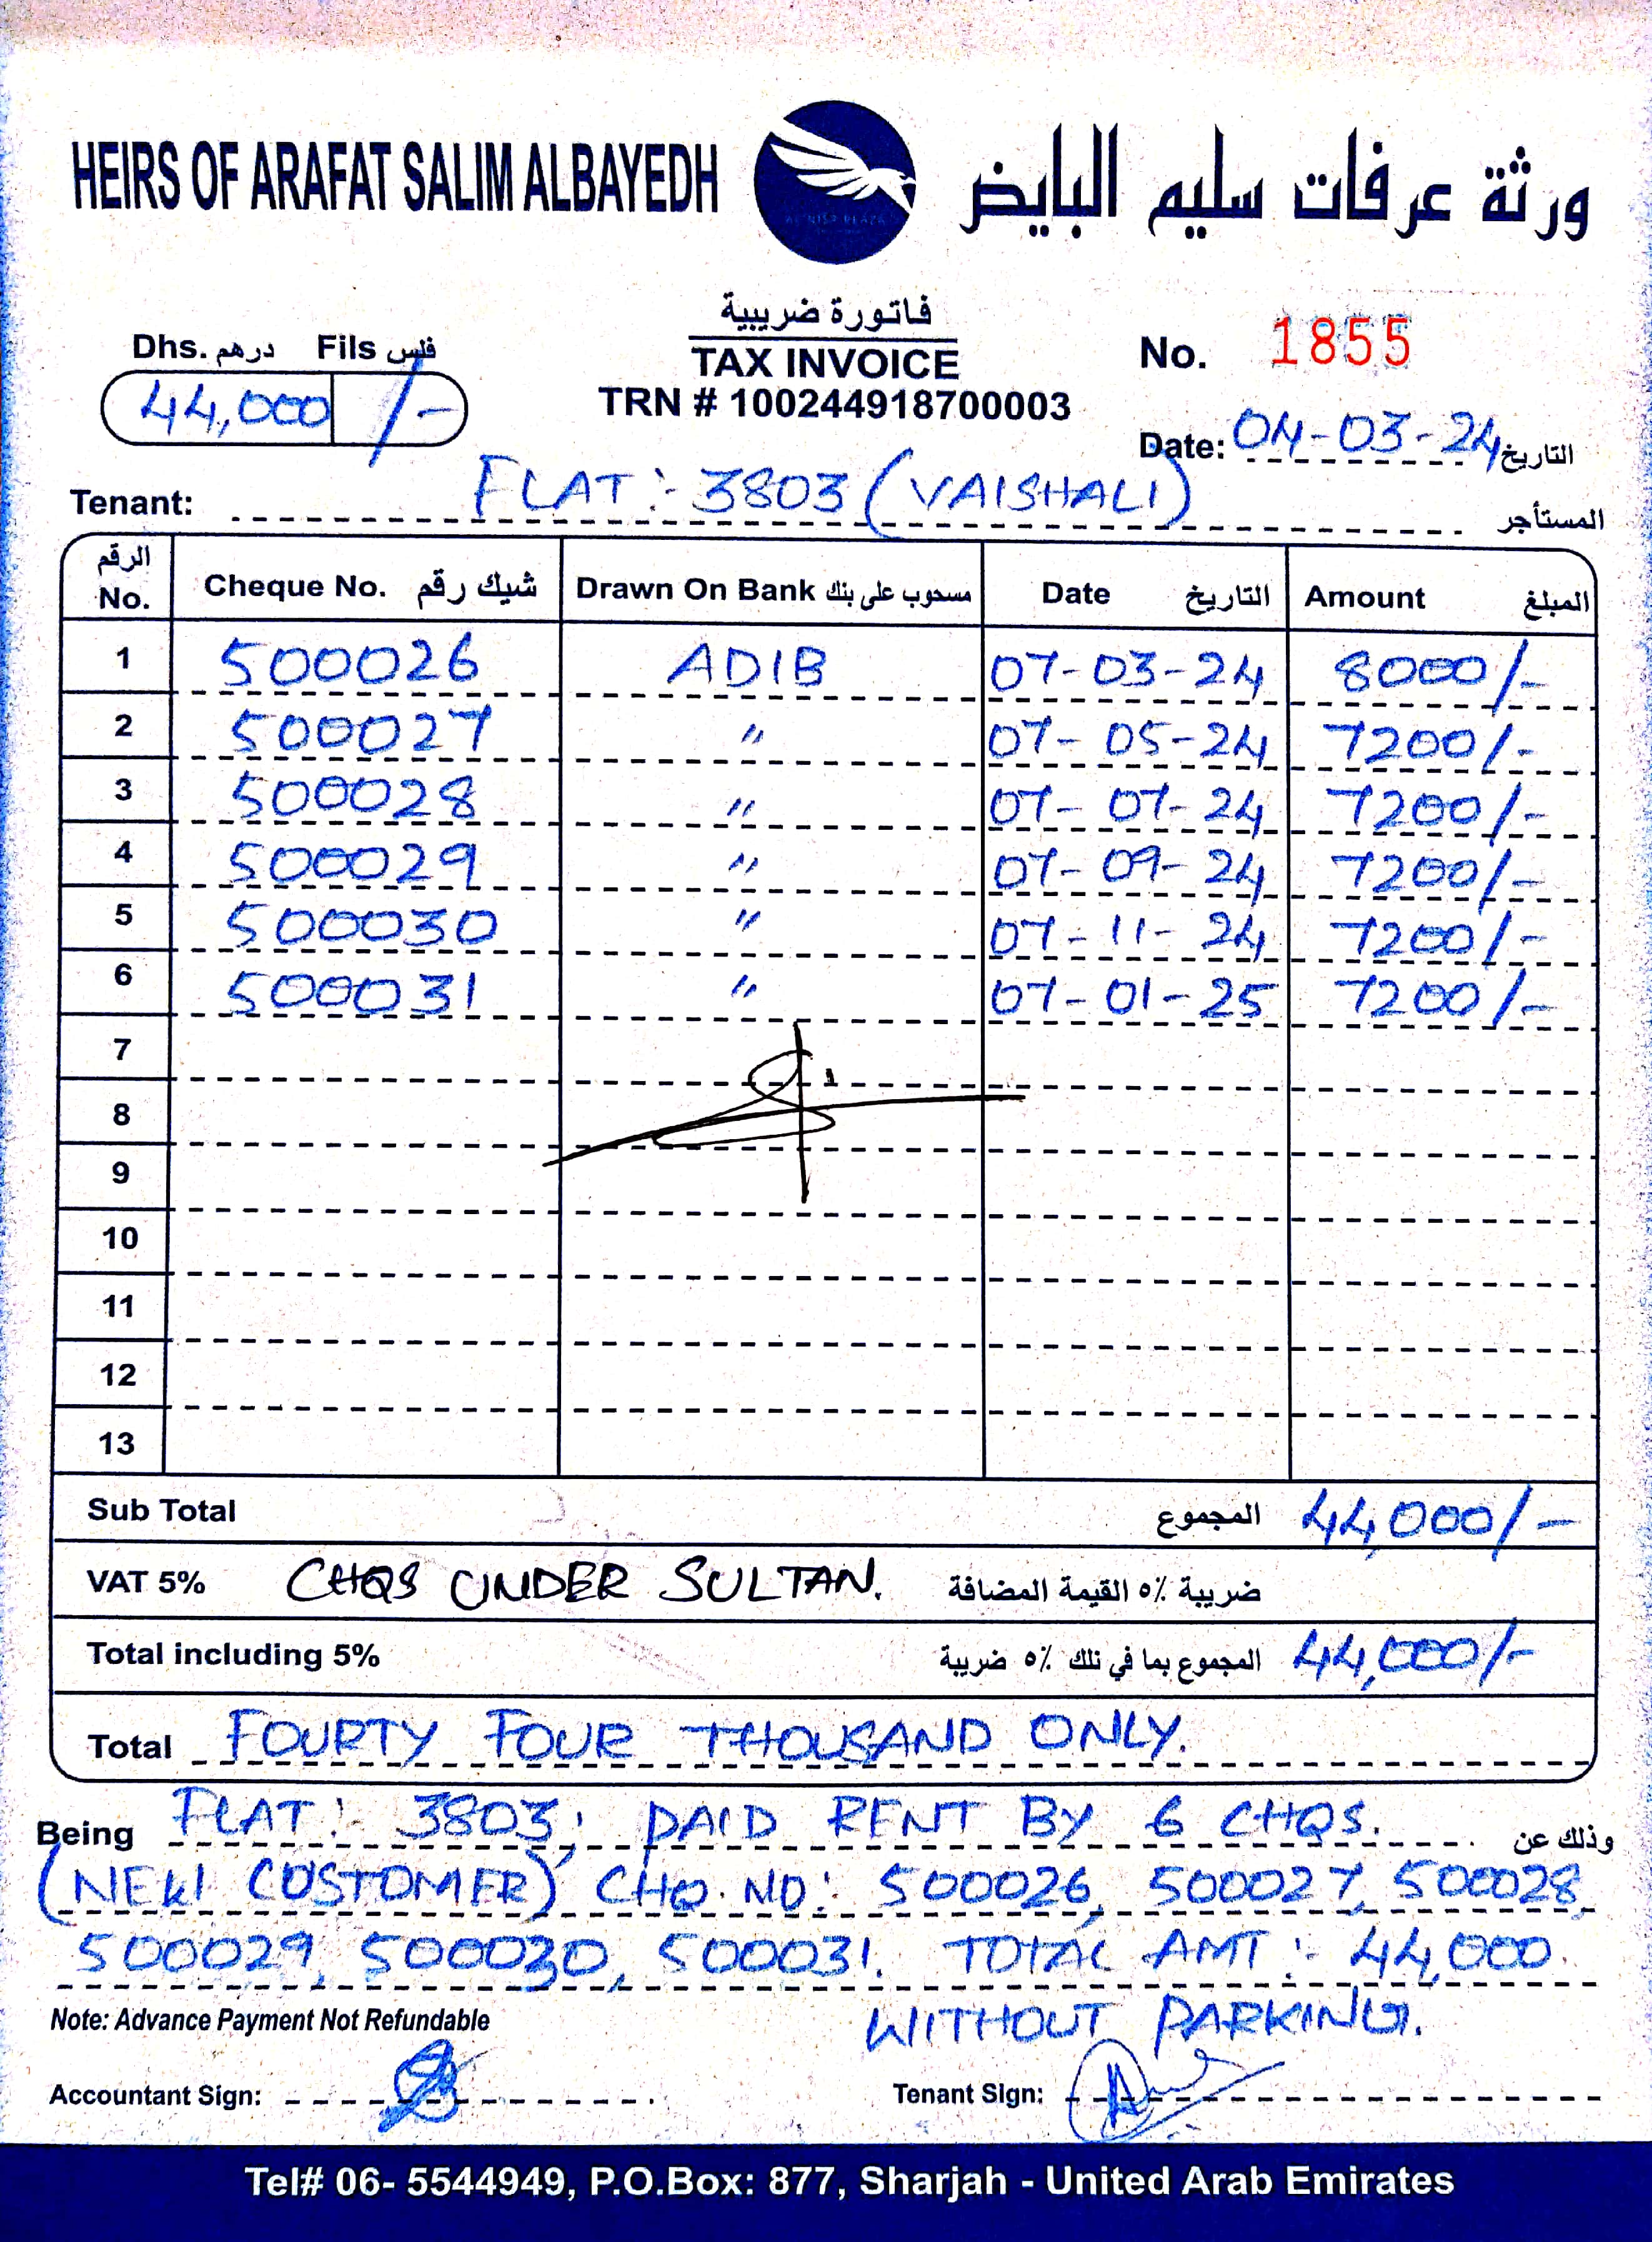 HEIRS OF ARAFAT SALIM ALBAYEDH
ورثة عرفات سليم البايض
فاتورة ضريبية
TAX INVOICE
TRN # 100244918700003
Dhs. درهم Fils فلس
44,000 /-
No. 1855
Date: 04-03-24 التاريخ
Tenant: FLAT :- 3803 (VAISHALI) المستأجر
الرقم No. Cheque No. شيك رقم Drawn On Bank مسحوب على بنك Date التاريخ Amount المبلغ
1 500026 ADIB 07-03-24 8000/-
2 500027 " 07-05-24 7200/-
3 500028 " 07-07-24 7200/-
4 500029 " 07-09-24 7200/-
5 500030 " 07-11-24 7200/-
6 500031 " 07-01-25 7200/-
7
8
9
10
11
12
13
Sub Total المجموع 44,000/-
VAT 5% CHQS UNDER SULTAN. ضريبة ٥٪ القيمة المضافة
Total including 5% المجموع بما في تلك ٥٪ ضريبة 44,000/-
Total FOURTY FOUR THOUSAND ONLY.
Being FLAT :- 3803, PAID RENT BY 6 CHQS. وذلك عن
(NEW CUSTOMER) CHQ. NO: 500026, 500027, 500028,
500029, 500030, 500031. TOTAL AMT :- 44,000.
Note: Advance Payment Not Refundable WITHOUT PARKING.
Accountant Sign: Tenant Sign:
Tel# 06- 5544949, P.O.Box: 877, Sharjah - United Arab Emirates